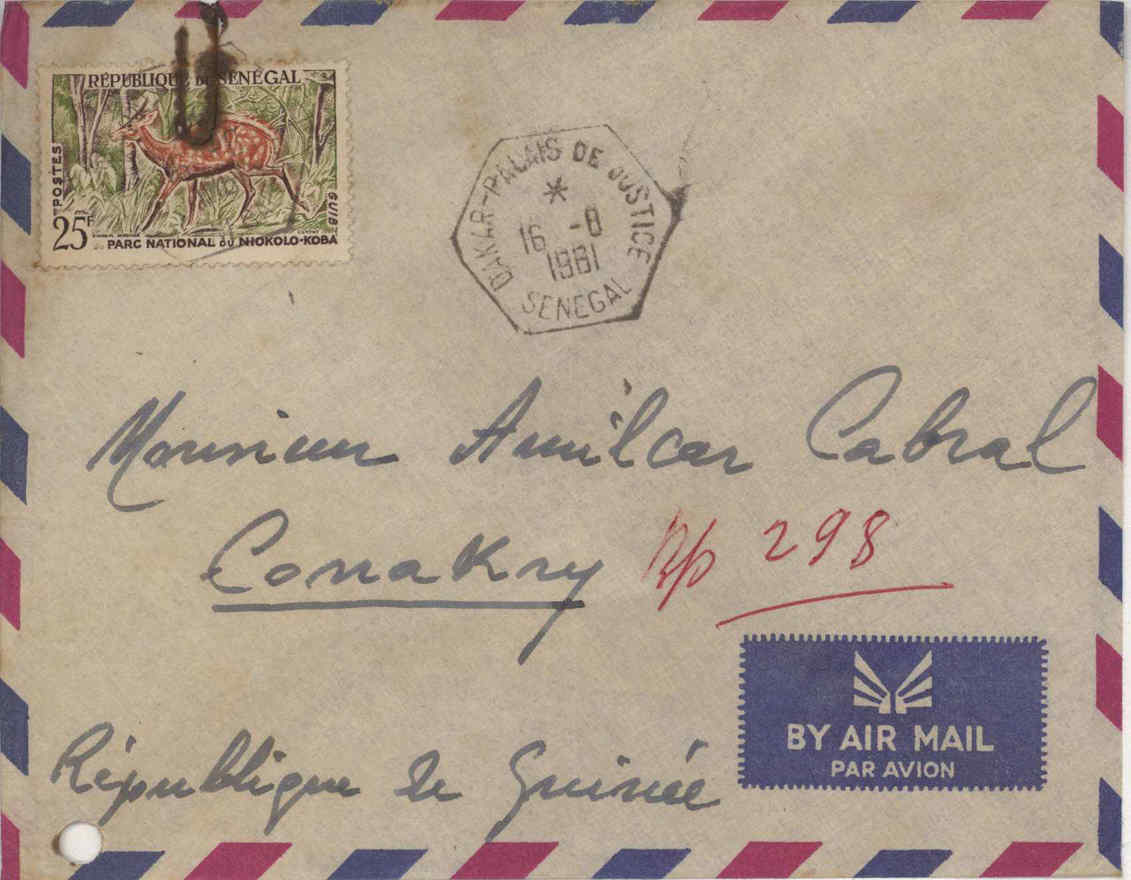 RÉPUBLIQUE DU SÉNÉGAL
POSTES
GUIB
25F
PARC NATIONAL DU NIOKOLO-KOBA
DAKAR-PALAIS DE JUSTICE
*
16 -8
1961
SENEGAL
Monsieur Amilcar Cabral
Conakry Bp 298
République de Guinée
BY AIR MAIL
PAR AVION